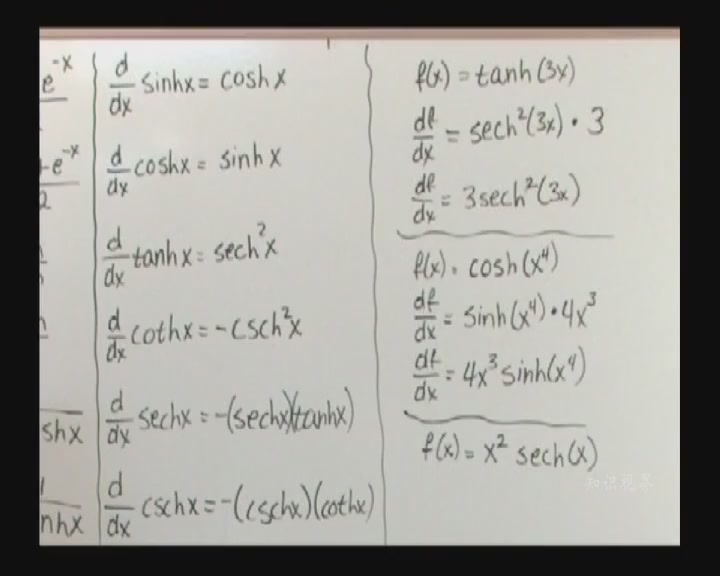 e^-x
+e^-x
2
shx
nhx
d/dx sinhx = coshx
d/dx coshx = sinhx
d/dx tanhx = sech²x
d/dx cothx = -csch²x
d/dx sechx = -(sechx)(tanhx)
d/dx cschx = -(cschx)(cothx)
f(x) = tanh(3x)
df/dx = sech²(3x) · 3
df/dx = 3sech²(3x)
f(x) = cosh(x⁴)
df/dx = sinh(x⁴) · 4x³
df/dx = 4x³ sinh(x⁴)
f(x) = x² sech(x)
知识视界